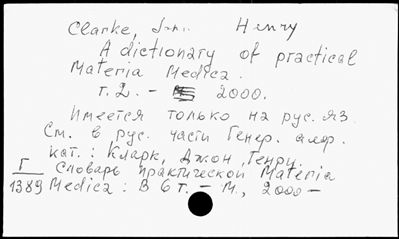 Clarke, John Henry
A dictionary of practical
Materia Medica.
т. 2. - 2000.
Имеется только на рус. яз.
См. в рус. части Генер. алф.
кат.: Кларк, Джон Генри.
Словарь практической Materia
Medica: В 6 т. - М., 2000 -
Г
1389